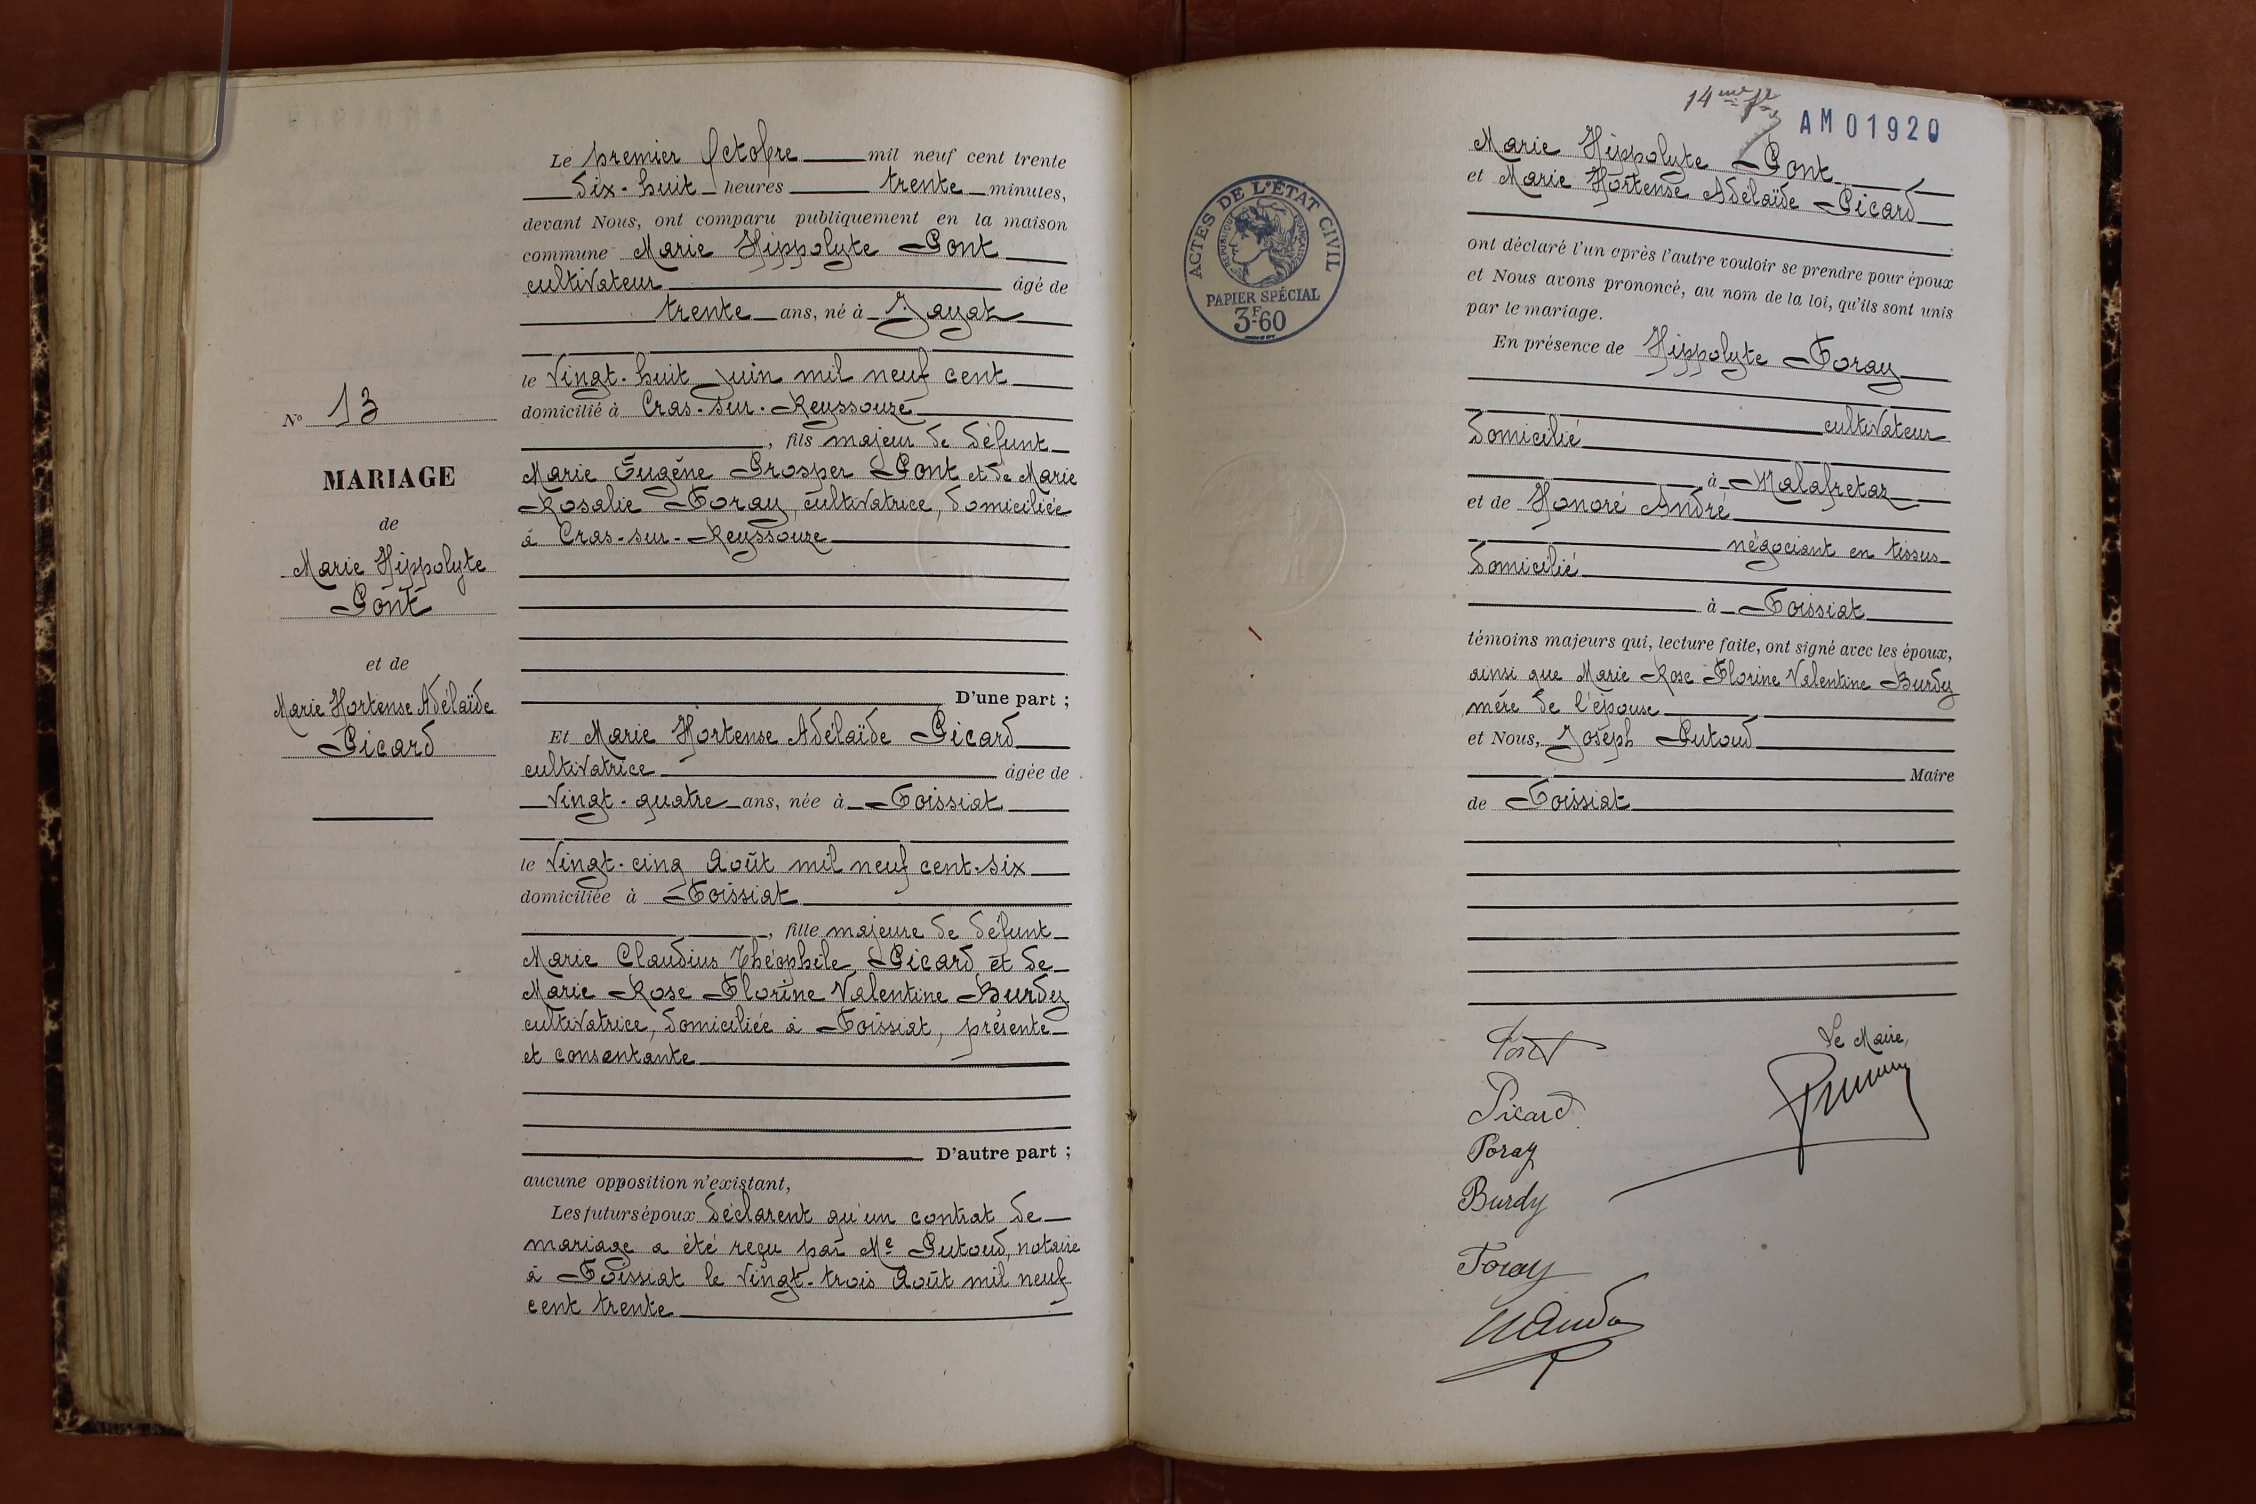 Le premier Octobre mil neuf cent trente
dix-huit heures trente minutes,
devant Nous, ont comparu publiquement en la maison
commune Marie Hippolyte Pont
cultivateur âgé de
trente ans, né à Jayat
le vingt-huit Juin mil neuf cent
domicilié à Cras-sur-Reyssouze
, fils majeur de défunt
Marie Eugène Prosper Pont et de Marie
Rosalie Foray, cultivatrice, domiciliée
à Cras-sur-Reyssouze
D'une part ;
Et Marie Hortense Adélaïde Picard
cultivatrice âgée de
vingt-quatre ans, née à Foissiat
le vingt-cinq Août mil neuf cent-six
domiciliée à Foissiat
, fille majeure de défunt
Marie Claudius Théophile Picard et de
Marie Rose Florine Valentine Burdy
cultivatrice, domiciliée à Foissiat, présente
et consentante
D'autre part ;
aucune opposition n'existant,
Les futurs époux déclarent qu'un contrat de
mariage a été reçu par Me Putoud, notaire
à Foissiat le vingt-trois Août mil neuf
cent trente
No 13
MARIAGE
de
Marie Hippolyte
Pont
et de
Marie Hortense Adélaïde
Picard
14me
AM01920
ACTES DE L'ÉTAT CIVIL
RÉPUBLIQUE FRANÇAISE
PAPIER SPÉCIAL
3F60
Marie Hippolyte Pont
et Marie Hortense Adélaïde Picard
ont déclaré l'un après l'autre vouloir se prendre pour époux
et Nous avons prononcé, au nom de la loi, qu'ils sont unis
par le mariage.
En présence de Hippolyte Foray
cultivateur
domicilié
à Malafretaz
et de Honoré André
négociant en tissus
domicilié
à Foissiat
témoins majeurs qui, lecture faite, ont signé avec les époux,
ainsi que Marie Rose Florine Valentine Burdy
mère de l'épouse
et Nous, Joseph Putoud
Maire
de Foissiat
Pont
Picard
Foray
Burdy
Foray
Le Maire,